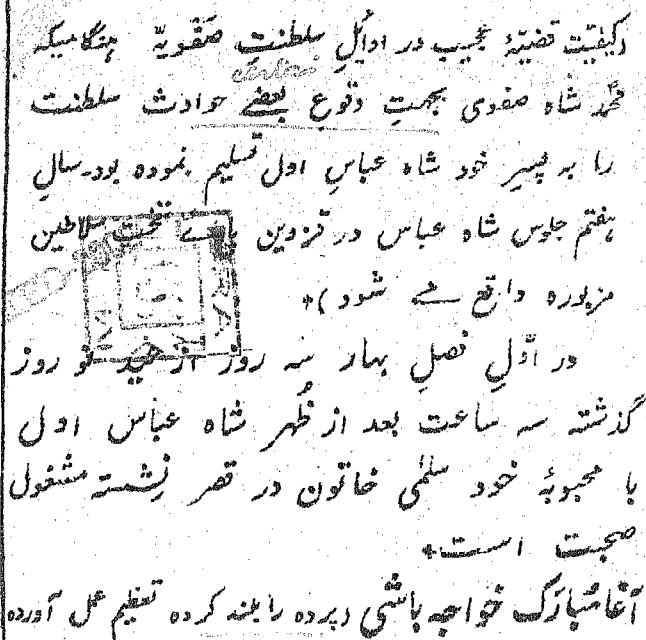 (کیفیّت قضیّۀ عجیب در اوائلِ سلطنتِ صَفَویّه هنگامیکه
محمّد شاه صفوی بجهتِ وقوعِ بعضے حوادث سلطنت
را به پسرِ خود شاه عباسِ اول تسلیم نموده بود سالِ
هفتم جلوس شاه عباس در قزوین پائے تختِ سلاطین
مزبوره واقع مے شود)+
در اوّلِ فصلِ بہار سہ روز از عیدِ نو روز
گذشتہ سہ ساعت بعد از ظُہر شاه عباس اول
با محبوبۀ خود سلمٰی خاتون در قصر نِشستہ مشغول
صحبت است+
آغا مُبارَک خواجه باشی (پرده را بلند کرده تعظیم عمل آورده